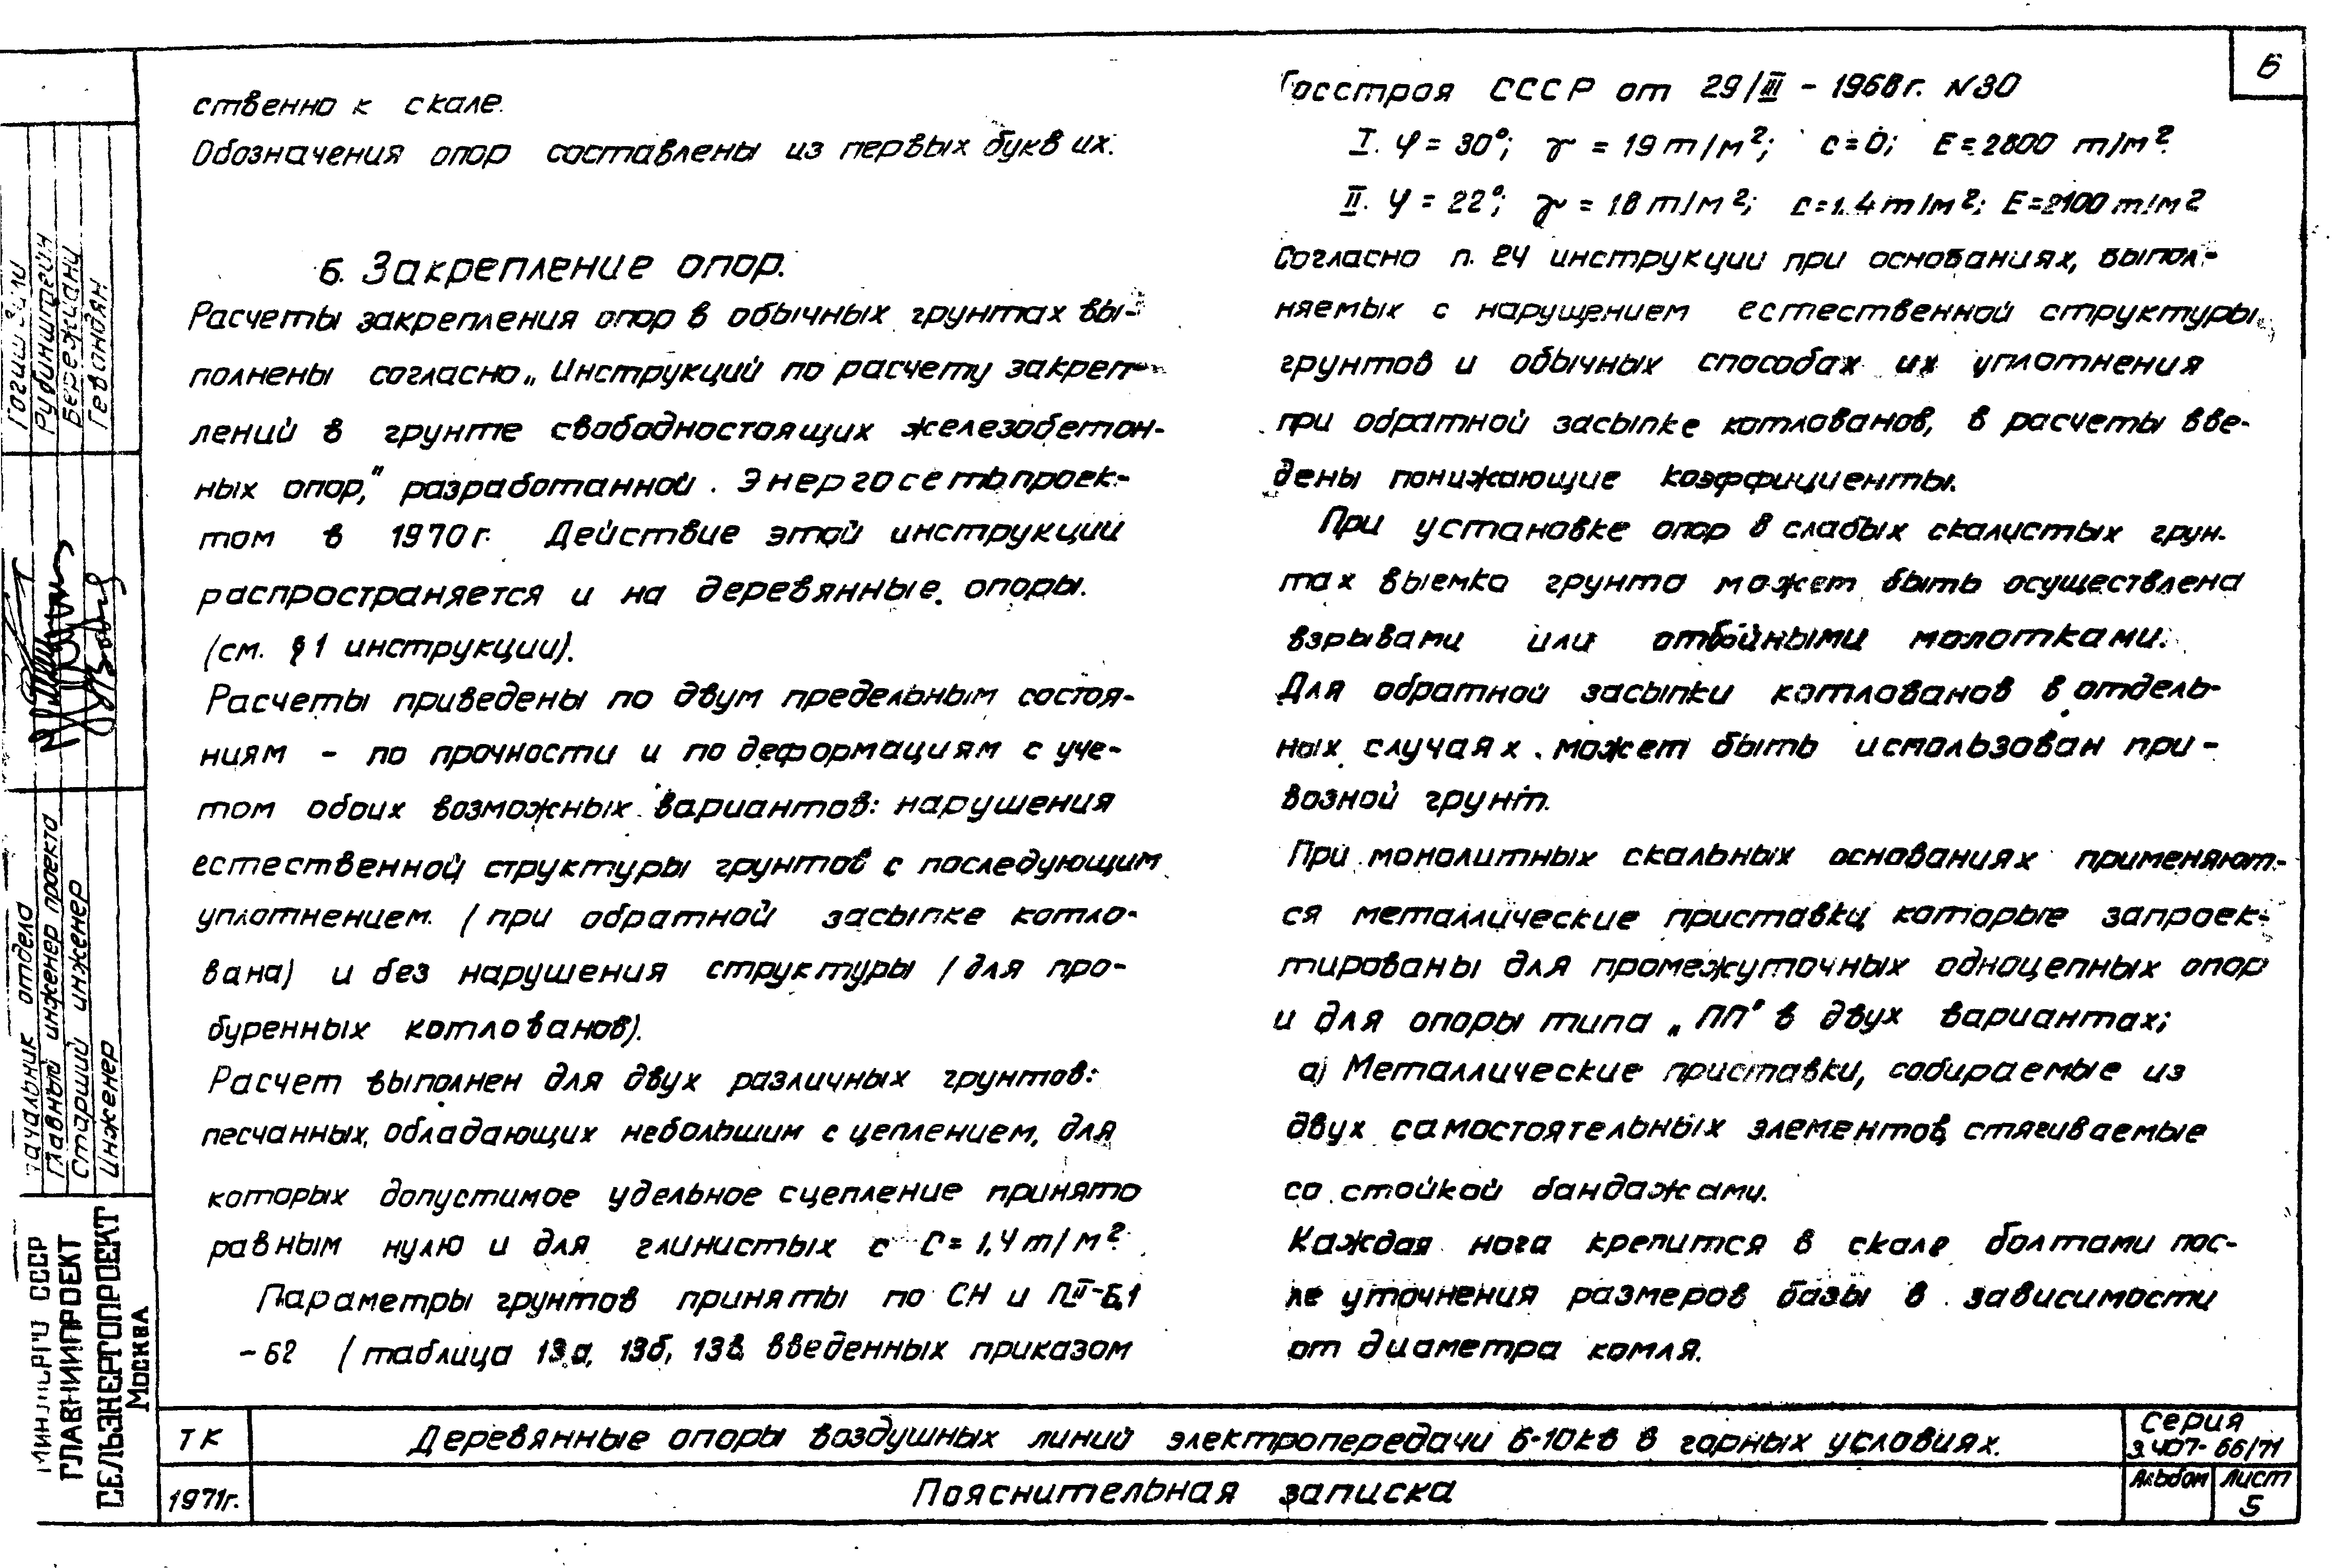 6
ственно к скале.
Обозначения опор составлены из первых букв их.
6. Закрепление опор.
Расчеты закрепления опор в обычных грунтах вы-
полнены согласно „Инструкций по расчету закреп-
лений в грунте свободностоящих железобетон-
ных опор," разработанной Энергосетьпроек-
том в 1970г. Действие этой инструкции
распространяется и на деревянные опоры.
(см. §1 инструкции).
Расчеты приведены по двум предельным состоя-
ниям - по прочности и по деформациям с уче-
том обоих возможных вариантов: нарушения
естественной структуры грунтов с последующим
уплотнением (при обратной засыпке котло-
вана) и без нарушения структуры (для про-
буренных котлованов).
Расчет выполнен для двух различных грунтов:
песчанных, обладающих небольшим сцеплением, для
которых допустимое удельное сцепление принято
равным нулю и для глинистых с С= 1,4т/м²
Параметры грунтов приняты по СН и ПII-Б.1
-62 (таблица 13а, 13б, 13в введенных приказом
Госстроя СССР от 29/III - 1968г. №30
I. φ = 30°; γ = 19 т/м²; с=0; Е=2800 т/м²
II. φ = 22°; γ = 18 т/м²; с=1.4т/м²; Е=2100т/м²
Согласно п. 24 инструкции при основаниях, выпол-
няемых с нарущением естественной структуры
грунтов и обычных способах их уплотнения
при обратной засыпке котлованов, в расчеты вве-
дены понижающие коэффициенты.
При установке опор в слабых скалистых грун-
тах выемка грунта может быть осуществлена
взрывами или отбойными молотками.
Для обратной засыпки котлованов в отдель-
ных случаях может быть использован при-
возной грунт.
При монолитных скальных основаниях применяют-
ся металлические приставки, которые запроек-
тированы для промежуточных одноцепных опор
и для опоры типа „ПП" в двух вариантах;
а) Металлические приставки, собираемые из
двух самостоятельных элементов, стягиваемые
со стойкой бандажами.
Каждая нога крепится в скале болтами пос-
ле уточнения размеров базы в зависимости
от диаметра комля.
Рубинштейн
Бережиани
Гевондян
Начальник отдела
Главный инженер проекта
Старший инженер
Инженер
Минэнерго СССР
ГЛАВНИИПРОЕКТ
СЕЛЬЭНЕРГОПРОЕКТ
Москва
ТК
1971г.
Деревянные опоры воздушных линий электропередачи 6-10кв в горных условиях.
Пояснительная записка
Серия
3.407-66/71
Альбом
Лист
5